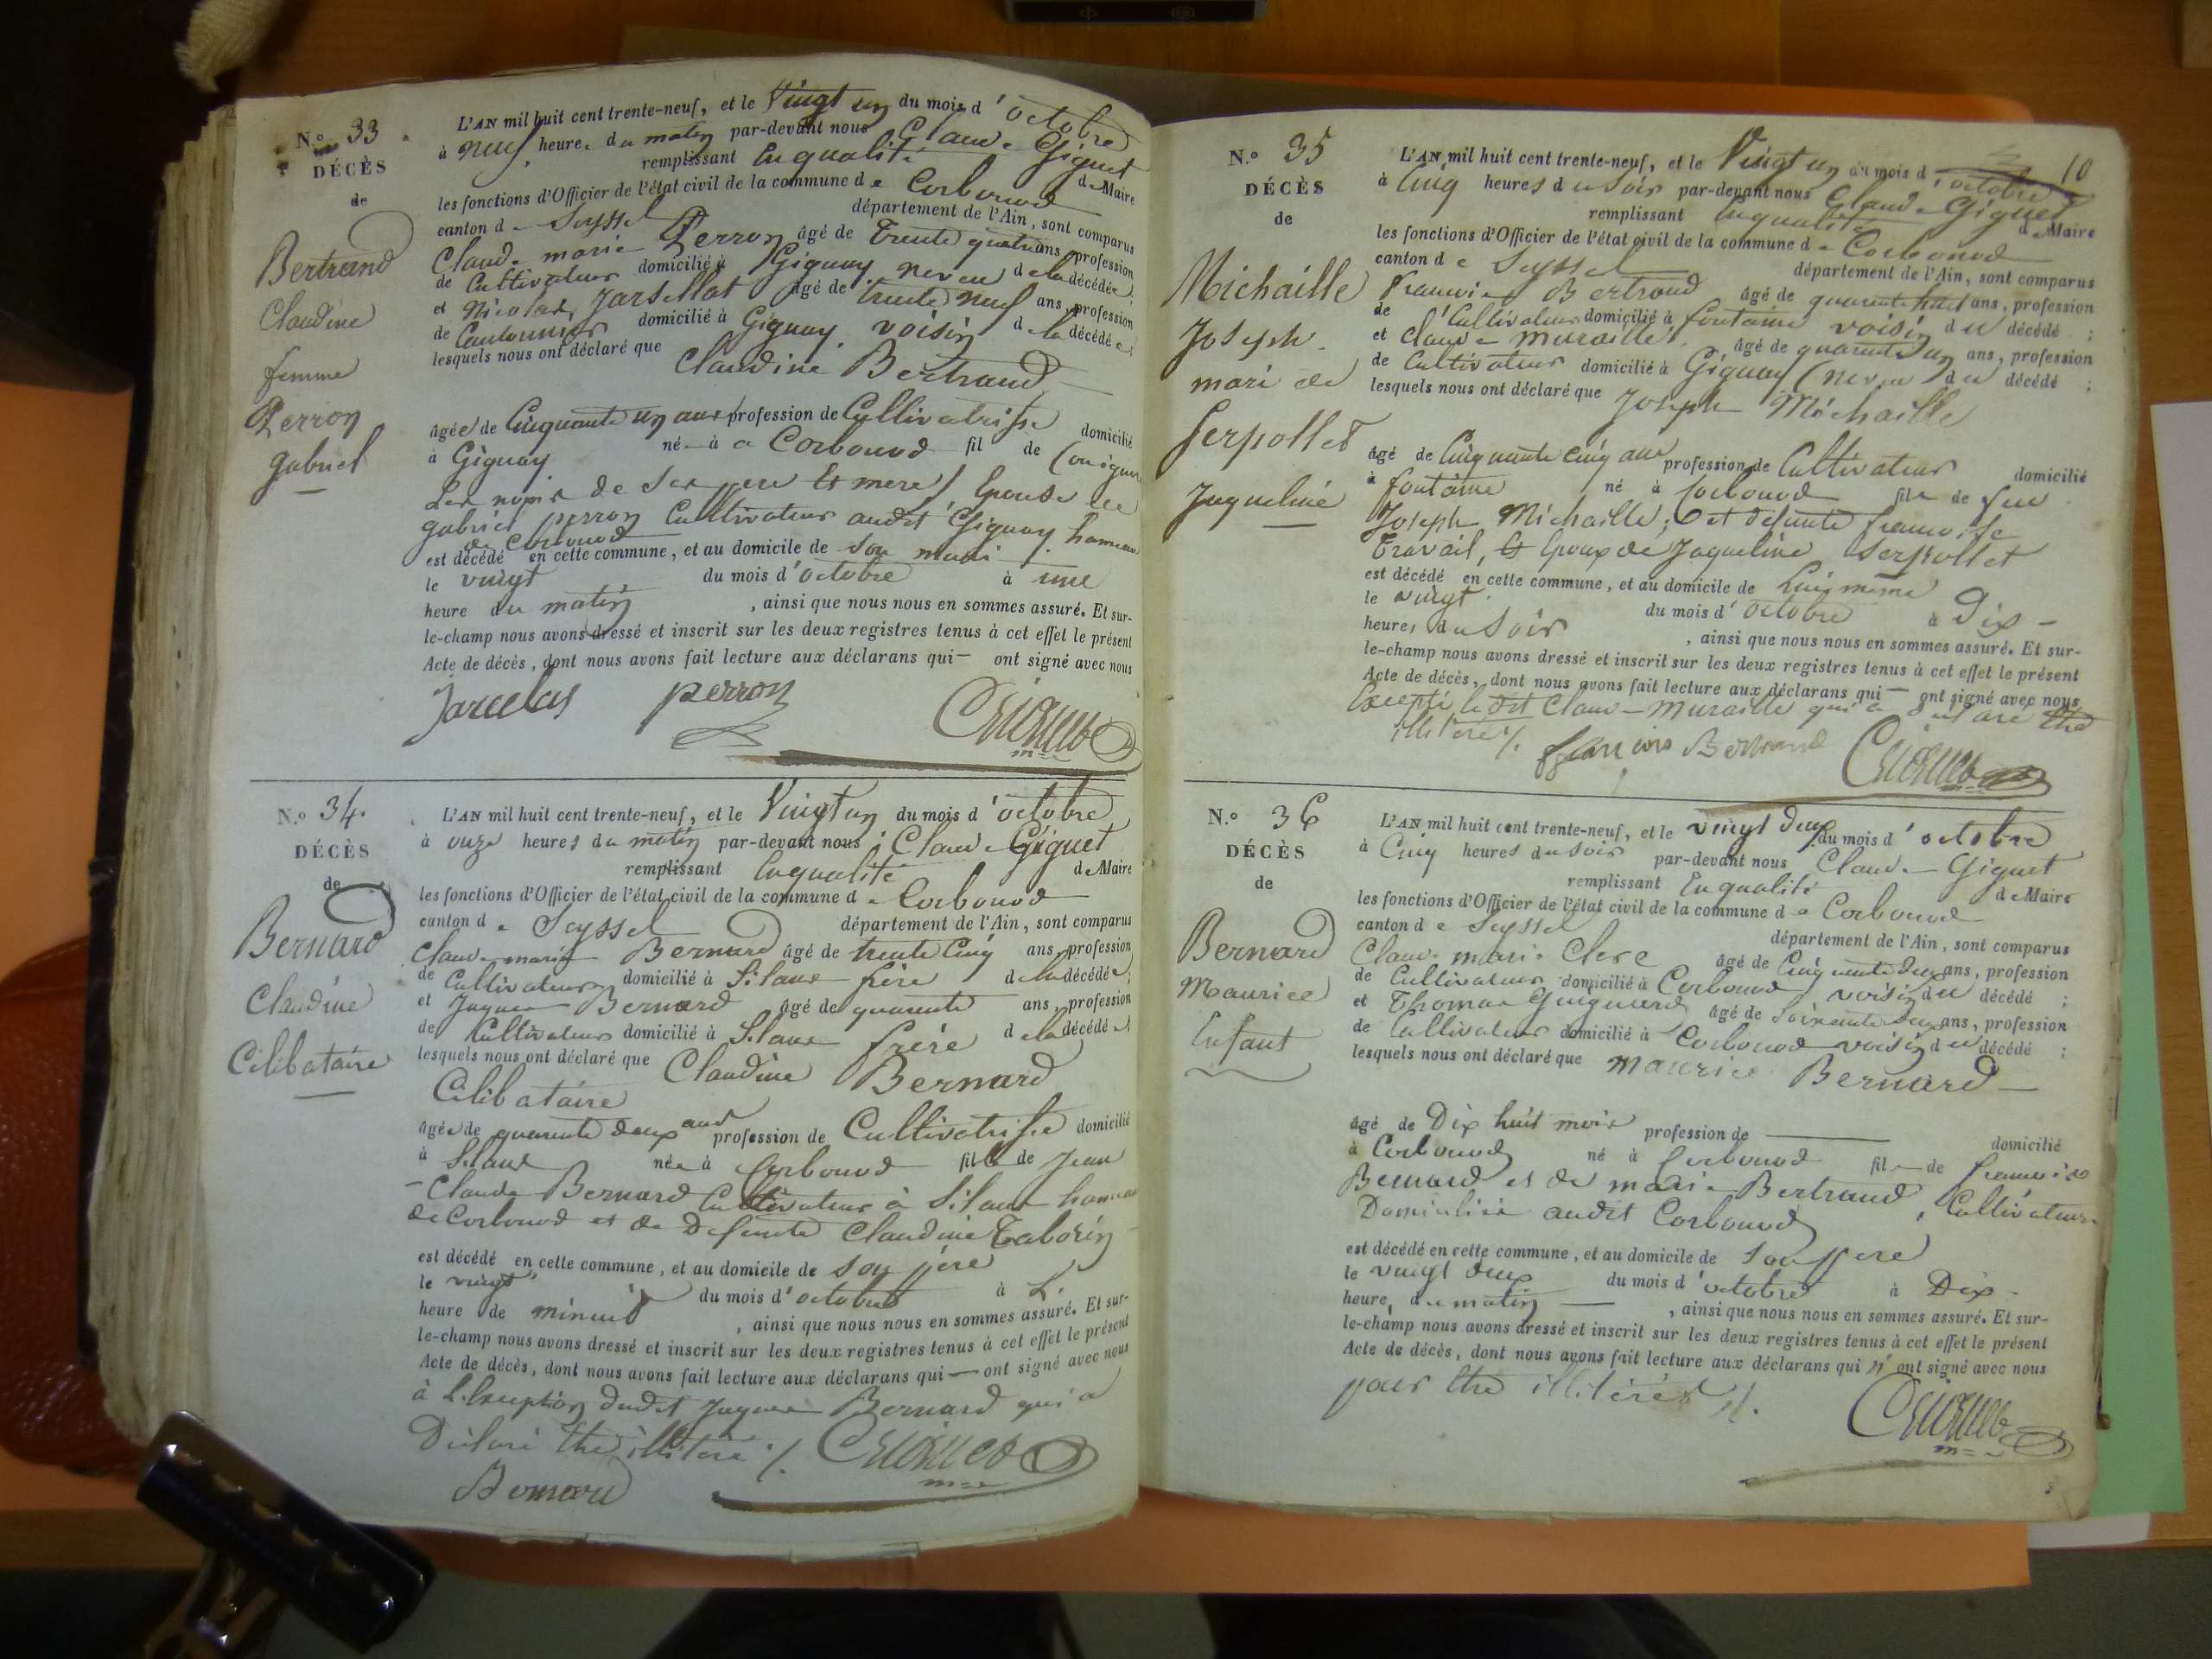 N.o 33
DÉCÈS
de
Bertrand
Claudine
femme
Perron
gabriel
L'AN mil huit cent trente-neuf, et le Vingt un du mois d'octobre
à neuf heure. du matin par-devant nous Claude Giguet
remplissant En qualité de Maire
les fonctions d'Officier de l'état civil de la commune de Corbonod
canton de Seyssel département de l'Ain, sont comparus
Claude marie Perron âgé de trente quatre ans, profession
de Cultivateur domicilié à Gignay neveu de la décédée;
et Nicolas Jarsellat âgé de trente neuf ans, profession
de Cantonnier domicilié à Gignay, voisin de la décédée;
lesquels nous ont déclaré que Claudine Bertrand
âgée de Cinquante un ans profession de Cultivatrisse domicilié
à Gignay née à Corbonod fil de (on ignore
Les noms de ses pere et mere) Epouse de
gabriel perron Cultivateur audit Gignay hameau
de Corbonod
est décédé en cette commune, et au domicile de son mari
le vingt du mois d'octobre à une
heure du matin, ainsi que nous nous en sommes assuré. Et sur-
le-champ nous avons dressé et inscrit sur les deux registres tenus à cet effet le présent
Acte de décès, dont nous avons fait lecture aux déclarans qui — ont signé avec nous
Jarcelas perron Giguet
N.o 34.
DÉCÈS
de
Bernard
Claudine
Célibataire
L'AN mil huit cent trente-neuf, et le Vingt un du mois d'octobre
à onze heures du matin par-devant nous Claude Giguet
remplissant En qualité de Maire
les fonctions d'Officier de l'état civil de la commune de Corbonod
canton de Seyssel département de l'Ain, sont comparus
Claude marie Bernard âgé de trente Cinq ans, profession
de Cultivateur domicilié à Silans frère de la décédée;
et Jaques Bernard âgé de quarante ans, profession
de Cultivateur domicilié à Silans frère de la décédée;
lesquels nous ont déclaré que Claudine Bernard
Célibataire
âgée de quarante deux ans profession de Cultivatrisse domicilié
à Silans née à Corbonod fille de Jean
-Claude Bernard Cultivateur à Silans hameau
de Corbonod et de Defunte Claudine Taborin
est décédé en cette commune, et au domicile de son père
le vingt du mois d'octobre à L'
heure de minuit, ainsi que nous nous en sommes assuré. Et sur-
le-champ nous avons dressé et inscrit sur les deux registres tenus à cet effet le présent
Acte de décès, dont nous avons fait lecture aux déclarans qui — ont signé avec nous
à L'Exception dudit Jaques Bernard qui a
Déclaré être illitéré ./. Giguet
Bernard
10
N.o 35
DÉCÈS
de
Michaille
Joseph
mari de
Serpollet
Jaqueline
L'AN mil huit cent trente-neuf, et le Vingt un du mois d'octobre
à Cinq heures du soir par-devant nous Claude Giguet
remplissant En qualité de Maire
les fonctions d'Officier de l'état civil de la commune de Corbonod
canton de Seyssel département de l'Ain, sont comparus
François Bertrand âgé de quarante huit ans, profession
de Cultivateur domicilié à fontaine voisin du décédé;
et Claude muraille, âgé de quarante un ans, profession
de Cultivateur domicilié à Gignay (neveu du décédé;
lesquels nous ont déclaré que Joseph Michaille
âgé de Cinquante Cinq ans profession de Cultivateur domicilié
à fontaine né à Corbonod fils de feu
Joseph Michaille, et défunte françoise
Travail, et Epoux de Jaqueline Serpollet
est décédé en cette commune, et au domicile de Lui même
le vingt du mois d'octobre à Dix -
heures du soir, ainsi que nous nous en sommes assuré. Et sur-
le-champ nous avons dressé et inscrit sur les deux registres tenus à cet effet le présent
Acte de décès, dont nous avons fait lecture aux déclarans qui — ont signé avec nous
Excepté ledit Claude muraille qui a déclaré être
illitéré ./. françois Bertrand Giguet
N.o 36
DÉCÈS
de
Bernard
Maurice
Enfant
L'AN mil huit cent trente-neuf, et le vingt deux du mois d'octobre
à Cinq heures du soir par-devant nous Claude Giguet
remplissant En qualité de Maire
les fonctions d'Officier de l'état civil de la commune de Corbonod
canton de Seyssel département de l'Ain, sont comparus
Claude marie Clerc âgé de Cinquante deux ans, profession
de Cultivateur domicilié à Corbonod voisin du décédé;
et Thomas Guignard âgé de soixante deux ans, profession
de Cultivateur domicilié à Corbonod voisin du décédé;
lesquels nous ont déclaré que maurice Bernard
âgé de Dix huit mois profession de — domicilié
à Corbonod né à Corbonod fils de françois
Bernard et de marie Bertrand, Cultivateurs
Domiciliés audit Corbonod
est décédé en cette commune, et au domicile de son pere
le vingt deux du mois d'octobre à Dix -
heures du matin —, ainsi que nous nous en sommes assuré. Et sur-
le-champ nous avons dressé et inscrit sur les deux registres tenus à cet effet le présent
Acte de décès, dont nous avons fait lecture aux déclarans qui n'ont signé avec nous
pour être illitérés ./.
Giguet